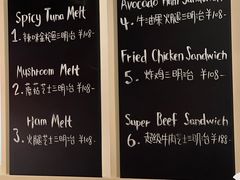 Spicy Tuna Melt
1. 辣味金枪鱼三明治 ¥108-
Mushroom Melt
2. 蘑菇芝士三明治 ¥108-
Ham Melt
3. 火腿芝士三明治 ¥108-
Avocado Ham Sandwich
4. 牛油果火腿三明治 ¥108-
Fried Chicken Sandwich
5. 炸鸡三明治 ¥108-
Super Beef Sandwich
6. 超级牛肉芝士三明治 ¥188-